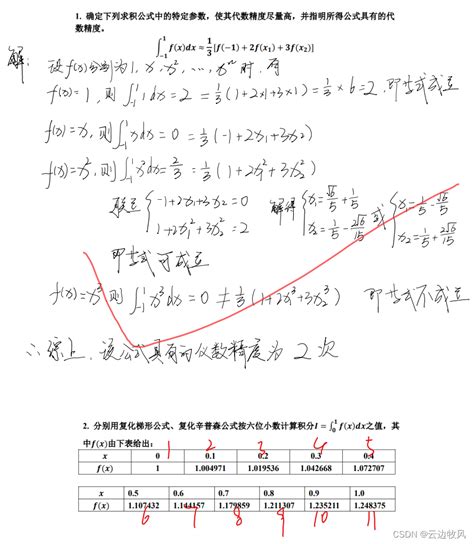 1. 确定下列求积公式中的特定参数，使其代数精度尽量高，并指明所得公式具有的代
数精度。
∫₋₁¹ f(x)dx ≈ 1/3[f(−1) + 2f(x₁) + 3f(x₂)]
解： 设f(x)分别为1, x, x², …, xⁿ时, 有
f(x)=1, 则∫₋₁¹ 1dx = 2 = 1/3(1+2×1+3×1) = 1/3×6 = 2, 即等式成立
f(x)=x, 则∫₋₁¹ xdx = 0 = 1/3(-1+2x₁+3x₂)
f(x)=x², 则∫₋₁¹ x²dx = 2/3 = 1/3(1+2x₁²+3x₂²)
联立 { -1+2x₁+3x₂=0 解得 { x₁=√6/5+1/5 或 { x₁=1/5-√6/5
1+2x₁²+3x₂²=2 x₂=1/5-2√6/15 x₂=1/5+2√6/15
即等式可成立
f(x)=x³ 则∫₋₁¹ x³dx = 0 ≠ 1/3(1+2x₁³+3x₂³) 即等式不成立
∴综上, 该公式具有的代数精度为2次
2. 分别用复化梯形公式、复化辛普森公式按六位小数计算积分I = ∫₀¹ f(x)dx之值，其
中f(x)由下表给出：
x 0 0.1 0.2 0.3 0.4
1 2 3 4 5
f(x) 1 1.004971 1.019536 1.042668 1.072707
x 0.5 0.6 0.7 0.8 0.9 1.0
f(x) 1.107432 1.144157 1.179859 1.211307 1.235211 1.248375
6 7 8 9 10 11
CSDN @云边牧风